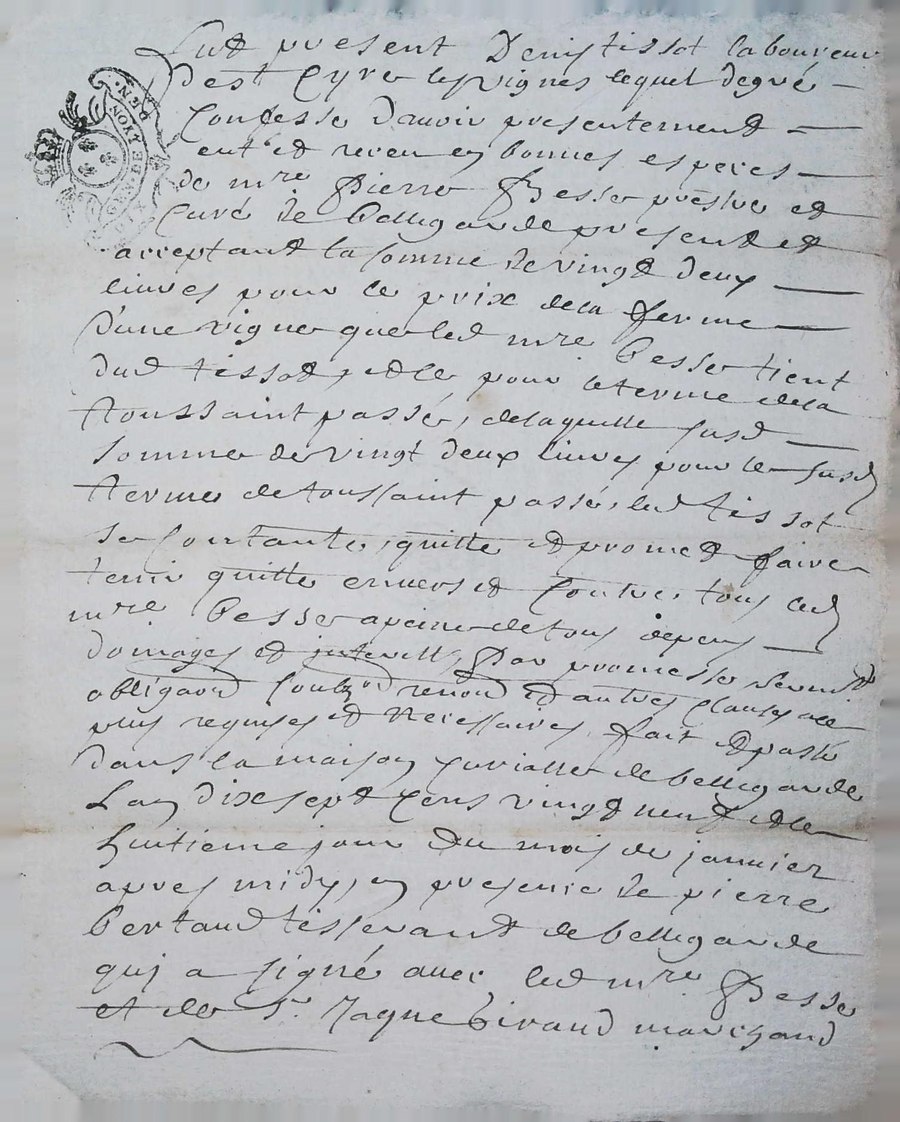 GEN. DE LYON
DIX DEN.
Fut present Denis tissot laboureur
de st Cyre les vignes lequel de gré
Confesse d'avoir presentement
eut et receu en bonnes especes
de mre Pierre Besse prestre et
Curé de bellegarde present et
acceptant la somme de vingt deux
livres pour le prix de la ferme
d'une vigne que led mre Besse tient
dud tissot, et ce pour le terme de la
toussaint passée, de laquelle susd
somme de vingt deux livres pour le susd
terme de toussaint passé, led tissot
se Contante, quitte et promet faire
tenir quitte envers et Contre tous led
mre Besse a peine de tous depens
domages et interests, Par promesse serment
obligaon renon et autres clauses a ce
plus requises et Necessaires, fait et passé
dans la maison Curialle de bellegarde
Lan dix sept Cens vingt neuf et le
huitieme jour du mois de janvier
apres midy, en presence de pierre
bertaud tisserant de bellegarde
qui a signé avec led mre Besse
et de Sr Jaque Giraud marchand